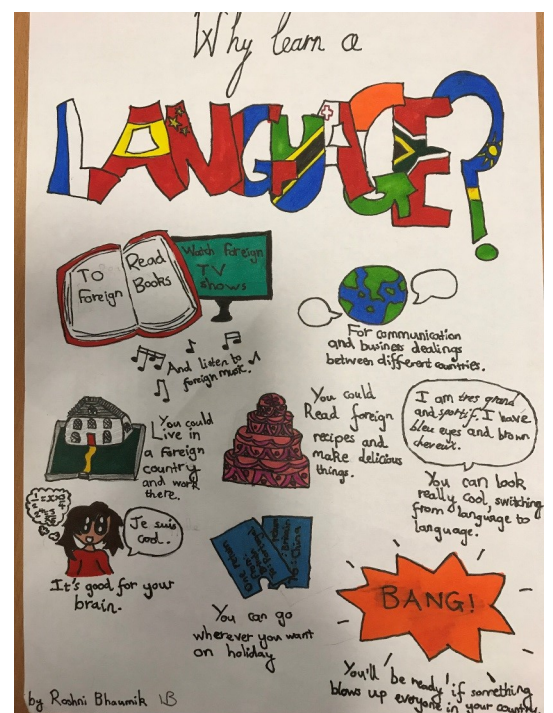 Why learn a
LANGUAGE?
TO Read
Foreign Books
Watch foreign
TV
shows
And listen to
foreign music.
For communication
and business dealings
between different countries.
You could
Live in
a foreign
country
and work
there.
You could
Read foreign
recipes and
make delicious
things.
I am tres grand
and sportif. I have
bleu eyes and brown
cheveux.
You can look
really cool, switching
from language to
language.
Je suis
cool.
It's good for your
brain.
Britain
China
You can go
wherever you want
on holiday
BANG!
You'll be ready if something
blows up everyone in your country.
by Roshni Bhaumik